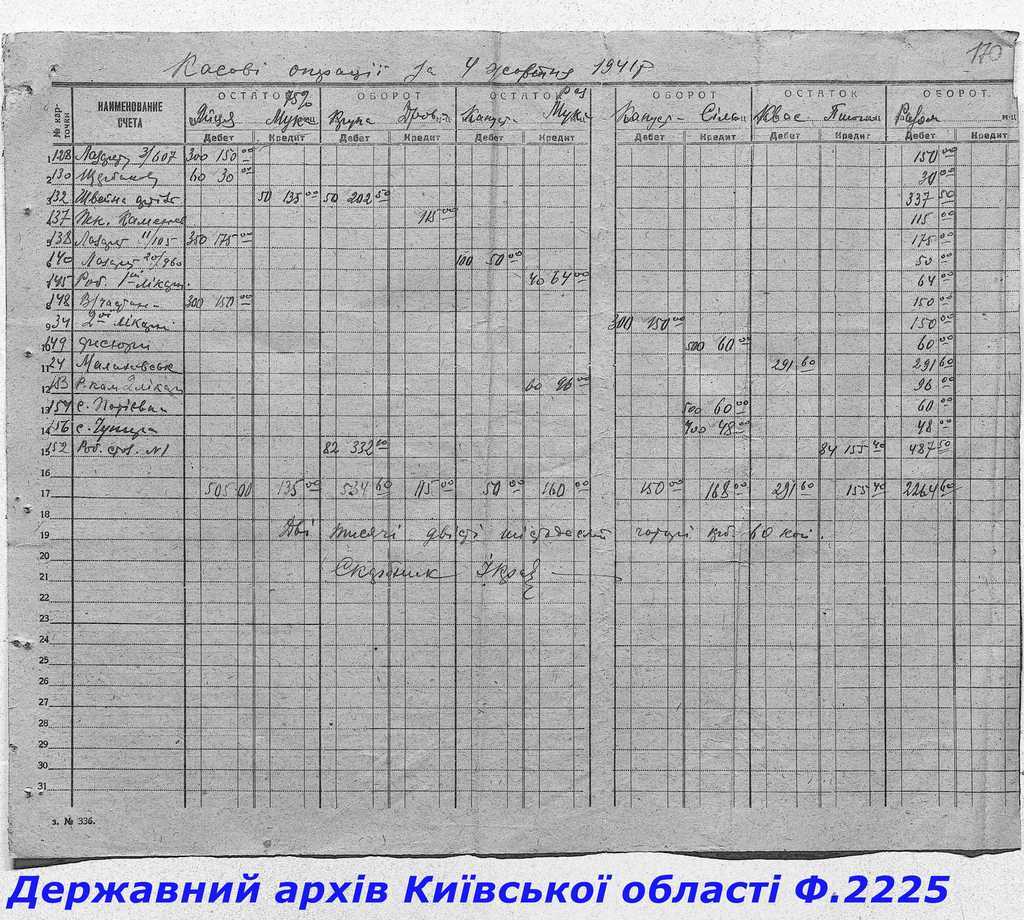 170
Касові операції за 4 жовтня 1941 р
№ кар-точки НАИМЕНОВАНИЕ СЧЕТА ОСТАТОК ОБОРОТ ОСТАТОК ОБОРОТ ОСТАТОК ОБОРОТ.
Яйця 75% Мука Крупа Дров Капуст- Мука Капуст- Сіль Квас Пшоно Разом
Дебет Кредит Дебет Кредит Дебет Кредит Дебет Кредит Дебет Кредит Дебет Кредит
1 128 Лазарет 3/607 300 150 00 150 00
2 130 60 30 00 30 00
3 132 Швейна 50 135 00 50 202 50 337 50
4 137 Жк. 115 00 115 00
5 138 Лазарет 11/105 350 175 00 175 00
6 140 Лазарет 20/960 100 50 00 50 00
7 145 Роб. 1ої лікарн. 40 64 00 64 00
8 148 В/частин- 300 150 00 150 00
9 34 2ої лікарні 300 150 00 150 00
10 149 500 60 00 60 00
11 24 291 60 291 60
12 153 2 лікарн 60 96 00 96 00
13 154 с. 500 60 00 60 00
14 156 с. 400 48 00 48 00
15 152 Роб. стол. №1 82 332 84 155 40 487 50
16
17 505 00 135 00 534 60 115 00 50 00 160 00 150 00 168 00 291 60 155 40 2264 60
18
19 Дві тисячі двісті шістдесят чотири крб. 60 коп.
20
21 Скарбник
22
23
24
25
26
27
28
29
30
31
з. № 336.
Державний архів Київської області Ф.2225